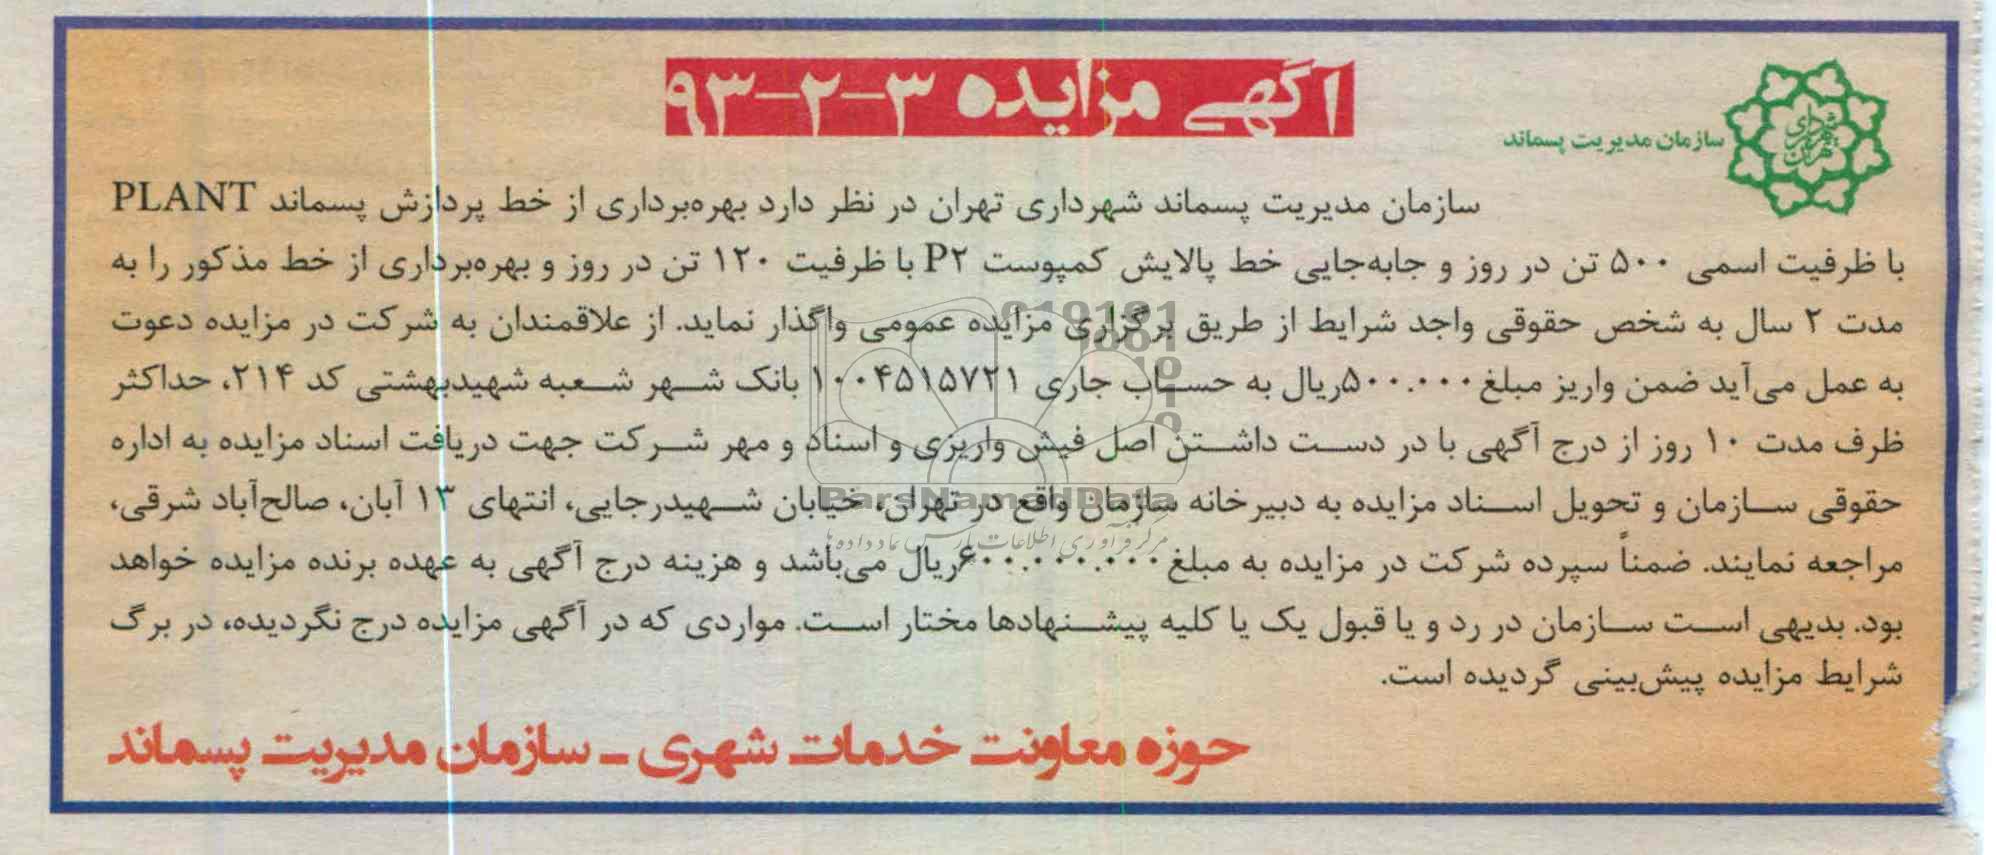 آگهی مزایده ۳-۲-۹۳
سازمان مدیریت پسماند
شهرداری تهران
سازمان مدیریت پسماند شهرداری تهران در نظر دارد بهره‌برداری از خط پردازش پسماند PLANT
با ظرفیت اسمی ۵۰۰ تن در روز و جابه‌جایی خط پالایش کمپوست P۲ با ظرفیت ۱۲۰ تن در روز و بهره‌برداری از خط مذکور را به
مدت ۲ سال به شخص حقوقی واجد شرایط از طریق برگزاری مزایده عمومی واگذار نماید. از علاقمندان به شرکت در مزایده دعوت
به عمل می‌آید ضمن واریز مبلغ ۵۰۰.۰۰۰ریال به حساب جاری ۱۰۰۴۵۱۵۷۲۱ بانک شهر شعبه شهیدبهشتی کد ۲۱۴، حداکثر
ظرف مدت ۱۰ روز از درج آگهی با در دست داشتن اصل فیش واریزی و اسناد و مهر شرکت جهت دریافت اسناد مزایده به اداره
حقوقی سازمان و تحویل اسناد مزایده به دبیرخانه سازمان واقع در تهران، خیابان شهیدرجایی، انتهای ۱۳ آبان، صالح‌آباد شرقی،
مراجعه نمایند. ضمناً سپرده شرکت در مزایده به مبلغ ۶۰۰.۰۰۰.۰۰۰ریال می‌باشد و هزینه درج آگهی به عهده برنده مزایده خواهد
بود. بدیهی است سازمان در رد و یا قبول یک یا کلیه پیشنهادها مختار است. مواردی که در آگهی مزایده درج نگردیده، در برگ
شرایط مزایده پیش‌بینی گردیده است.
حوزه معاونت خدمات شهری ـ سازمان مدیریت پسماند
ParsNamadData
مرکز فرآوری اطلاعات پارس نماد داده‌ها